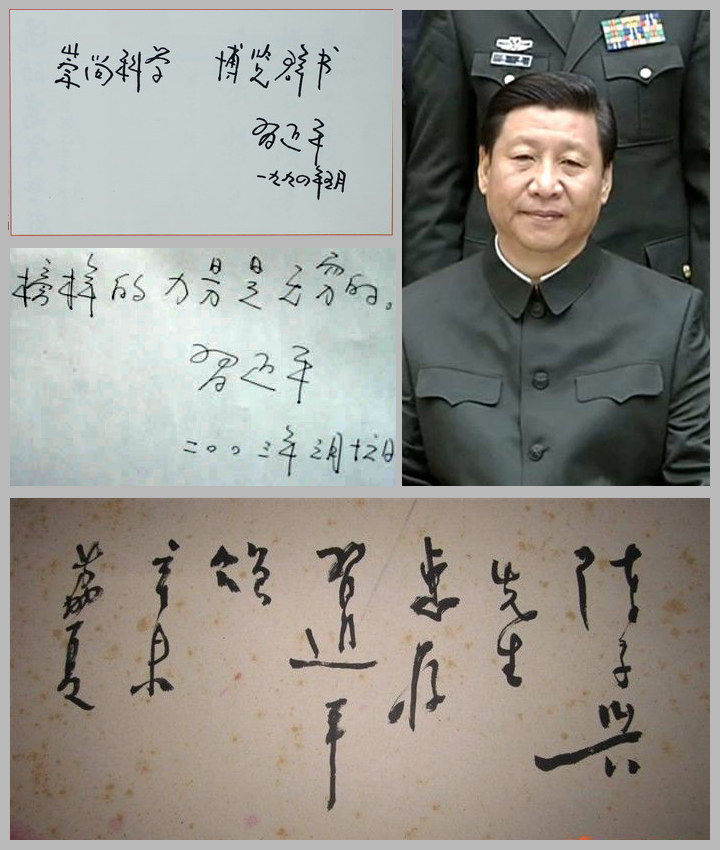 崇尚科学 博览群书
习近平
一九九四年五月
榜样的力量是无穷的。
习近平
二〇〇三年三月十日
陈子兴
先生
惠存
習近平
辛未
荔夏